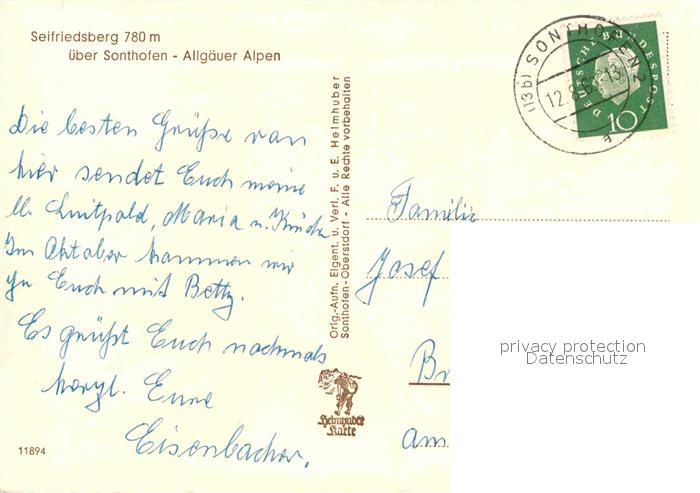 Seifriedsberg 780 m
über Sonthofen - Allgäuer Alpen
Die besten Grüße von
hier sendet Euch meine
Luitpold, Maria u. Kinder
Im Oktober kommen wir
zu Euch mit Betty.
Es grüßt Euch nochmals
herzl. Eure
Eisenbacher.
11894
Orig.-Aufn. Eigent. u. Verl. F. u. E. Heimhuber
Sonthofen-Oberstdorf - Alle Rechte vorbehalten
Heimhuber
Karte
(13b) SONTHOFEN 2
a
DEUTSCHE BUNDESPOST
10
Familie
Josef
privacy protection
Datenschutz
am